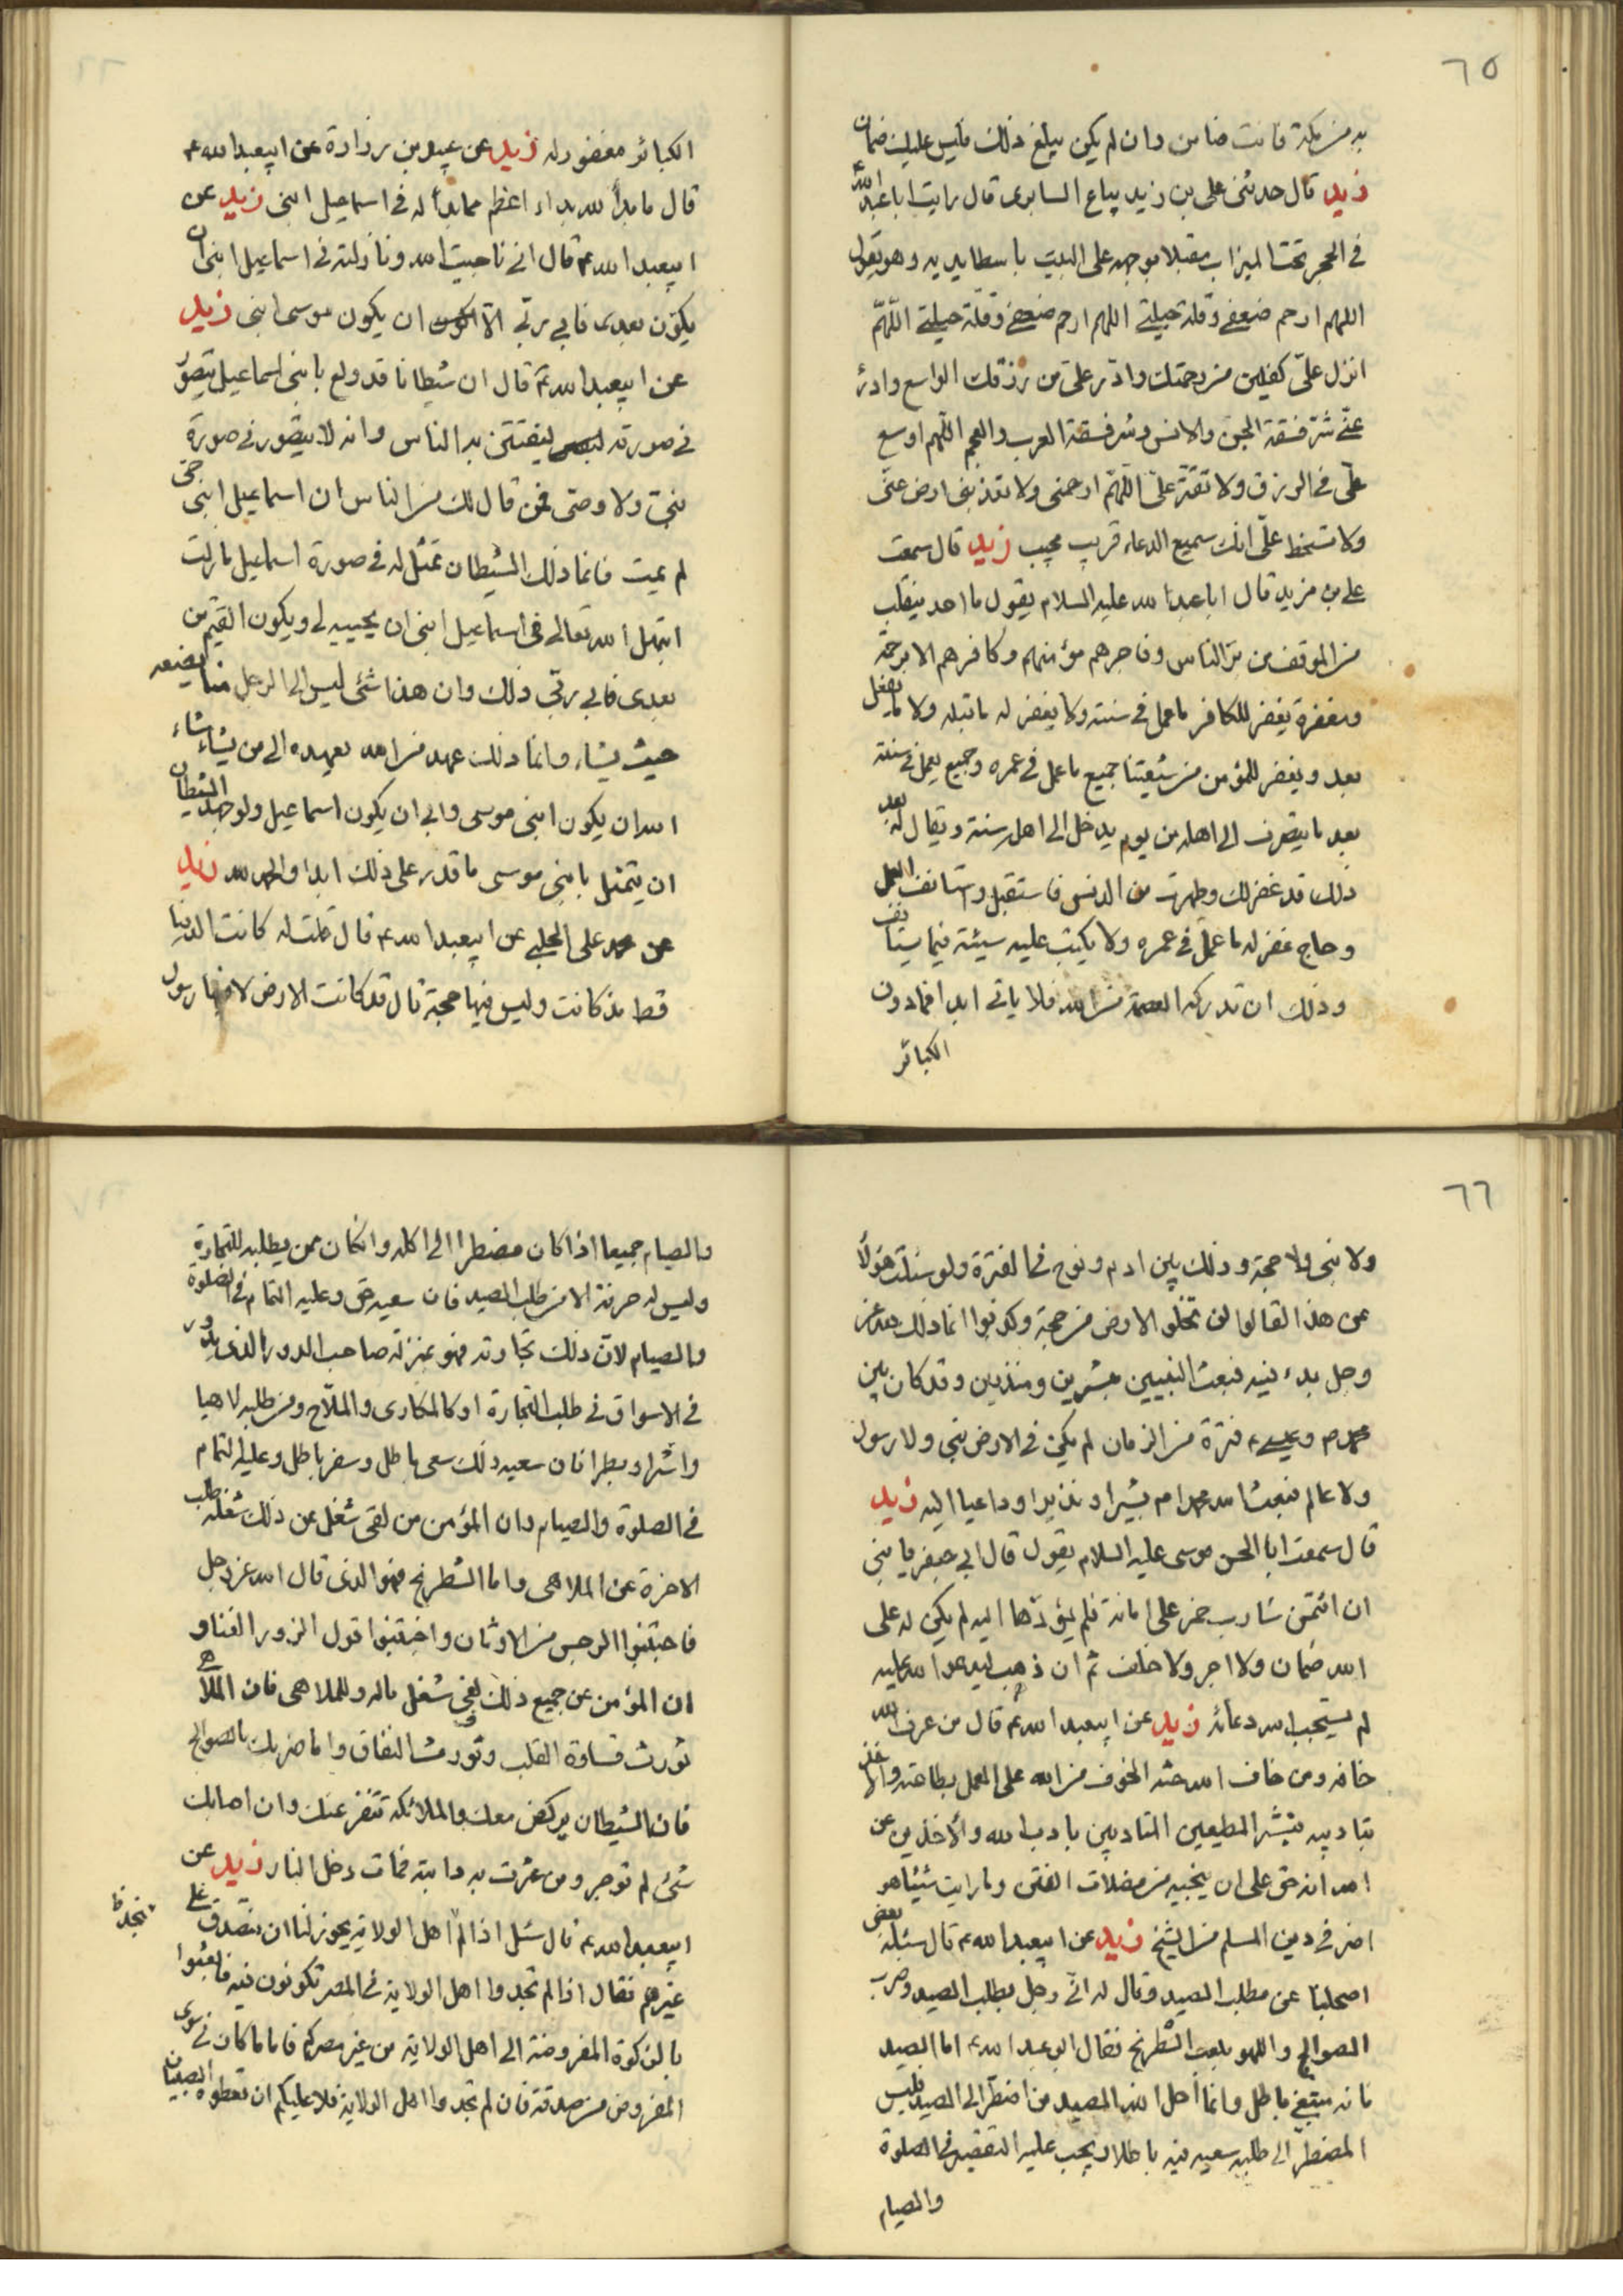 ٦٥
به من مكة فانت ضامن وان لم يكن يبلغ ذلك فليس عليك ضمان
زيد قال حدثنى على بن زيد بياع السابرى قال رايت ابا عبد الله
فى الحجر تحت الميزاب مقبلا بوجهه على البيت باسطا يديه وهو يقول
اللهم ارحم ضعفى وقلة حيلتى اللهم ارحم ضعفى وقلة حيلتى اللهمّ
انزل علىّ كفلين من رحمتك وادر علىّ من رزقك الواسع وادرء
عنّى شرّ فسقة الجن والانس وشر فسقة العرب والعجم اللهم اوسع
علىّ فى الرزق ولا تقتّر علىّ اللهمّ ارحمنى ولا تعذبنى ارض عنّى
ولا تسخط علىّ انك سميع الدعاء قريب مجيب زيد قال سمعت
على بن مزيد قال ابا عبد الله عليه السلام يقول ما احد ينقلب
من الموقف من برّ الناس وفاجرهم مؤمنهم وكافرهم الا برحمة
ومغفرة يغفر للكافر ما عمل فى سنته ولا يغفر له ما قبله ولا ما يفعل
بعد ويغفر للمؤمن من شيعتنا جميع ما عمل فى عمره وجميع يعمل فى سنته
بعد ما ينصرف الى اهله من يوم يدخل الى اهل سنة ويقال له بعد
ذلك قد غفر لك وطهرت من الدنس فاستقبل واستانف العمل
وحاج غفر له ما عمل فى عمره ولا يكتب عليه سيئة فيما يستانف
وذلك ان تدركه العصمة من الله فلا ياتى ابدا فما دون
الكبائر
الكبائر مغفور له زيد عن عبيد بن زرارة عن ابيعبد الله ع
قال ما بدأ لله بداء اعظم مما بدأ له فى اسماعيل ابنى زيد عن
ابيعبد الله ع قال انى ناجيت الله ونازلته فى اسماعيل ابنى ان
يكون بعدى فابى ربّى الا ان يكون موسى ابنى زيد
عن ابيعبد الله ع قال ان شيطانا قد ولع بابنى اسماعيل يتصوّر
فى صورته ليفتتن به الناس وانه لا يتصور فى صورة
نبىّ ولا وصى فمن قال لك من الناس ان اسماعيل ابنى حىّ
لم يمت فانما ذلك الشيطان تمثل له فى صورة اسماعيل ما زلت
ابتهل الى الله تعالى فى اسماعيل ابنى ان يحييه لى ويكون القيّم من
بعدى فابى ربّى ذلك وان هذا شئ ليس الى الرجل منا يضعه
حيث يشاء وانما ذلك عهد من الله يعهده الى من يشاء شاء
الله ان يكون ابنى موسى وابى ان يكون اسماعيل ولو جهد الشيطان
ان يتمثل بابنى موسى ما قدر على ذلك ابدا والحمد لله زيد
عن محمد على الحلبى عن ابيعبد الله ع قال قلت له كانت الدنيا
قط مذ كانت وليس فيها حجة قال قد كانت الارض لا فيها رسول
٦٦
ولا نبى ولا حجة وذلك بين ادم ونوح فى الفترة ولو سئلت هؤلاء
عن هذا لقالوا لن تخلو الارض من حجة وكذبوا انما ذلك عز
وجل بدء فيه فبعث النبيين مبشرين ومنذرين وقد كان بين
محمد ص وعيسى ع فترة من الزمان لم يكن فى الارض نبى ولا رسول
ولا عالم فبعث الله محمدا ص بشيرا ونذيرا وداعيا اليه زيد
قال سمعت ابا الحسن موسى عليه السلام يقول قال ابى جعفر يا بنى
ان ائتمن شارب خمر على امانة فلم يؤدّها اليه لم يكن له على
الله ضمان ولا اجر ولا خلف ثم ان ذهب ليدعوا الله عليه
لم يستجب الله دعائه زيد عن ابيعبد الله ع قال من عرف الله
خافه ومن خاف الله حثه الخوف من الله على العمل بطاعته والاخذ
بتاديبه فبشّر المطيعين المتادبين بادب الله والآخذين عن
الله انه حق على ان ينجيه من مضلات الفتن وما رايت شيئا هو
اضر فى دين المسلم من الشحّ زيد عن ابيعبد الله ع قال سئله بعض
اصحابنا عن مطلب الصيد وقال له انّى رجل يطلب الصيد وضرب
الصوالج واللهو بلعب الشطرنج فقال ابو عبد الله ع اما الصيد
فانه مبتغى باطل وانما احل الله الصيد من اضطر الى الصيد فليس
المضطرّ الى طلبه سعيه فيه باطلا ويجب عليه التقصير فى الصلوة
والصيام
والصيام جميعا اذا كان مضطرا الى اكله وان كان ممن يطلبه للتجارة
وليس له حرفة الا من طلب الصيد فان سعيه حق وعليه التمام فى الصلوة
والصيام لان ذلك تجارته فهو بمنزلة صاحب الدور الذى يدور
فى الاسواق فى طلب التجارة او كالمكارى والملّاح ومن طلبه لاهيا
واشرا وبطرا فان سعيه ذلك سعى باطل وسفر باطل وعليه التمام
فى الصلوة والصيام وان المؤمن من لفى شغل عن ذلك شغله طلب
الاخرة عن الملاهى واما الشطرنج فهو الذى قال الله عز وجل
فاجتنبوا الرجس من الاوثان واجتنبوا قول الزور الغناء و
ان المؤمن عن جميع ذلك لفى شغل ماله وللملاهى فان الملاهى
تورث قساوة القلب وتورث النفاق واما ضربك بالصوالج
فان الشيطان يركض معك والملائكة تنفر عنك وان اصابك
شئ لم توجر ومن عثرت به دابته فمات دخل النار زيد عن
ابيعبد الله ع قال سئل اذا لم اهل الولاية يجوز لنا ان نتصدق على
نجد
غيرهم فقال اذا لم تجدوا اهل الولاية فى المصر تكونون فيه فابعثوا
بالزكوة المفروضة الى اهل الولاية من غير مصركم فاما ما كان فى سوى
المفروض من صدقة فان لم تجدوا اهل الولاية فلا عليكم ان تعطوه الصبيان